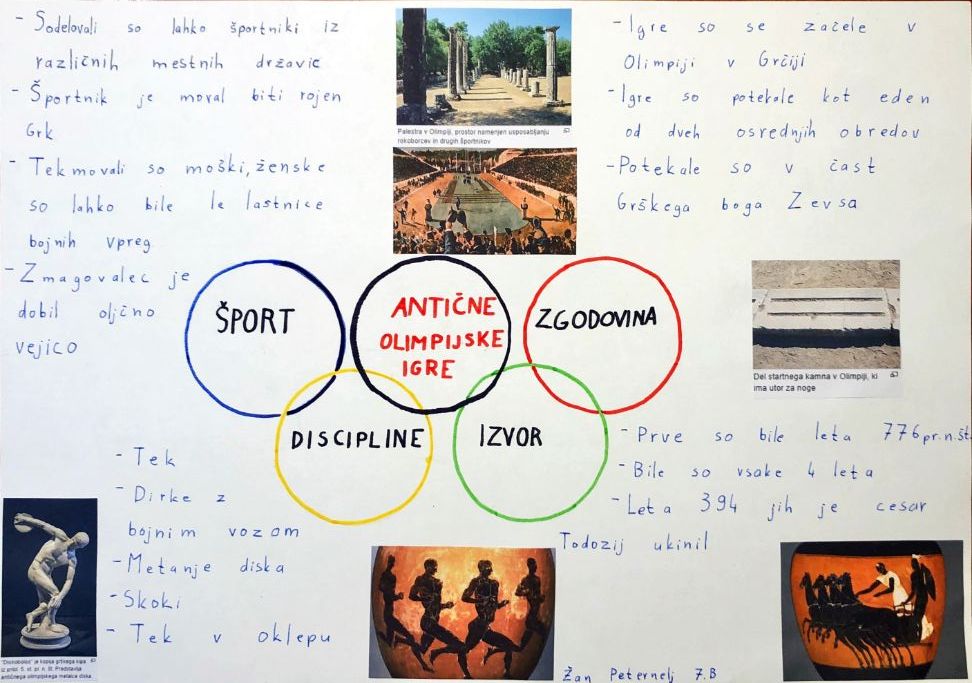 - Sodelovali so lahko športniki iz
različnih mestnih državic
- Športnik je moral biti rojen
Grk
- Tekmovali so moški, ženske
so lahko bile le lastnice
bojnih vpreg
- Zmagovalec je
dobil oljčno
vejico
Palestra v Olimpiji, prostor namenjen usposabljanju
rokoborcev in drugih športnikov
- Igre so se začele v
Olimpiji v Grčiji
- Igre so potekale kot eden
od dveh osrednjih obredov
- Potekale so v čast
Grškega boga Zevsa
ŠPORT
ANTIČNE
OLIMPIJSKE
IGRE
ZGODOVINA
DISCIPLINE
IZVOR
Del startnega kamna v Olimpiji, ki
ima utor za noge
- Tek
- Dirke z
bojnim vozom
- Metanje diska
- Skoki
- Tek v oklepu
- Prve so bile leta 776 pr.n.št.
- Bile so vsake 4 leta
- Leta 394 jih je cesar
Todozij ukinil
"Diskobolos" je kopija grškega kipa
iz pribl. 5. st. pr. n. št. Predstavlja
antičnega olimpijskega metalca diska.
Žan Peternelj 7.B